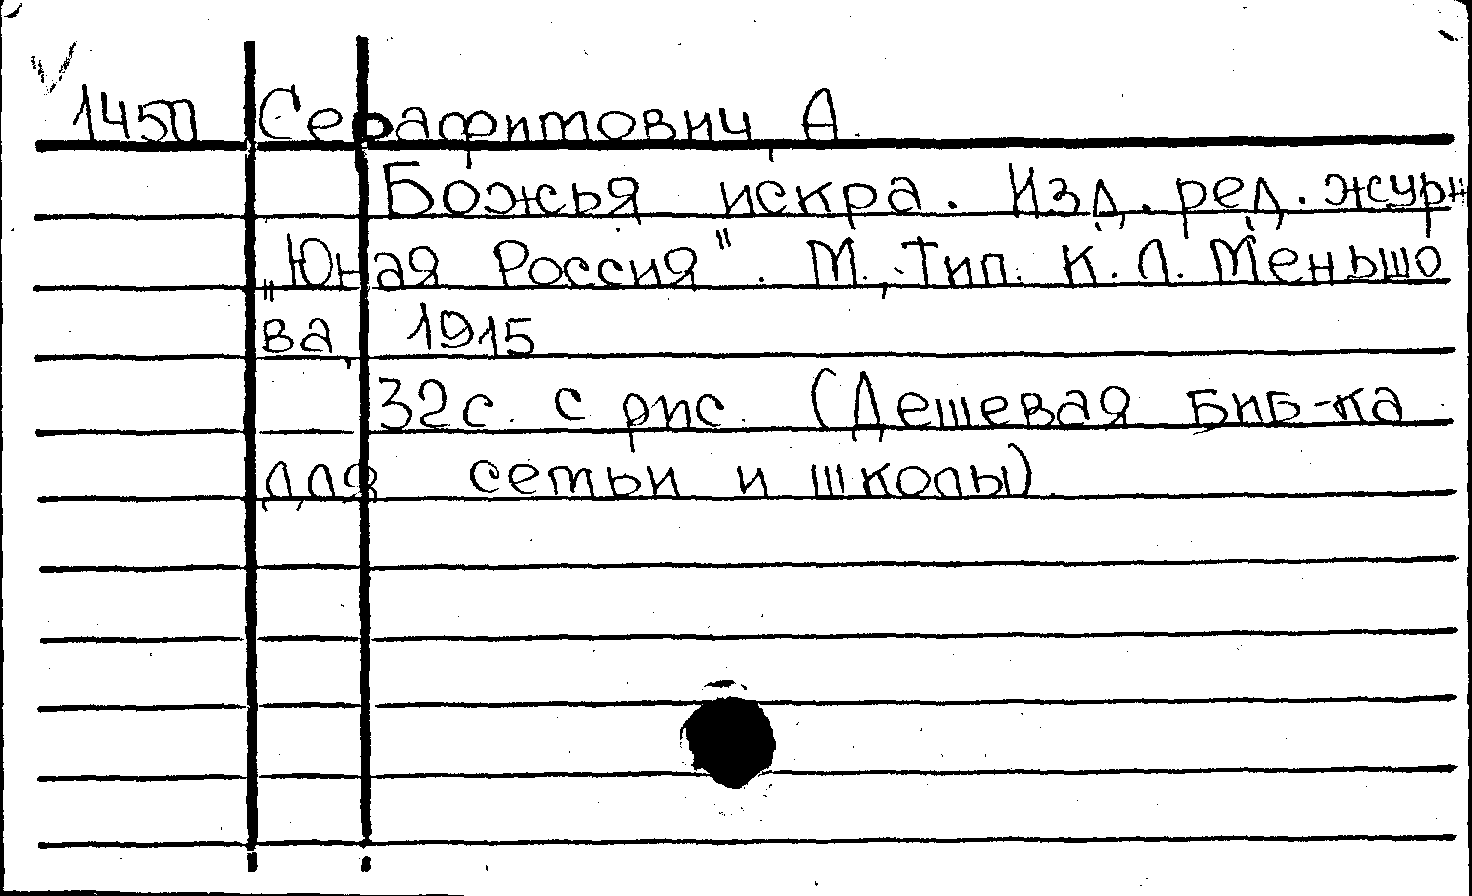 1450 Серафимович А.
Божья искра. Изд. ред. журн
„Юная Россия". М., Тип. К. Л. Меньшо
ва, 1915
32с. с рис. (Дешевая биб-ка
для семьи и школы).